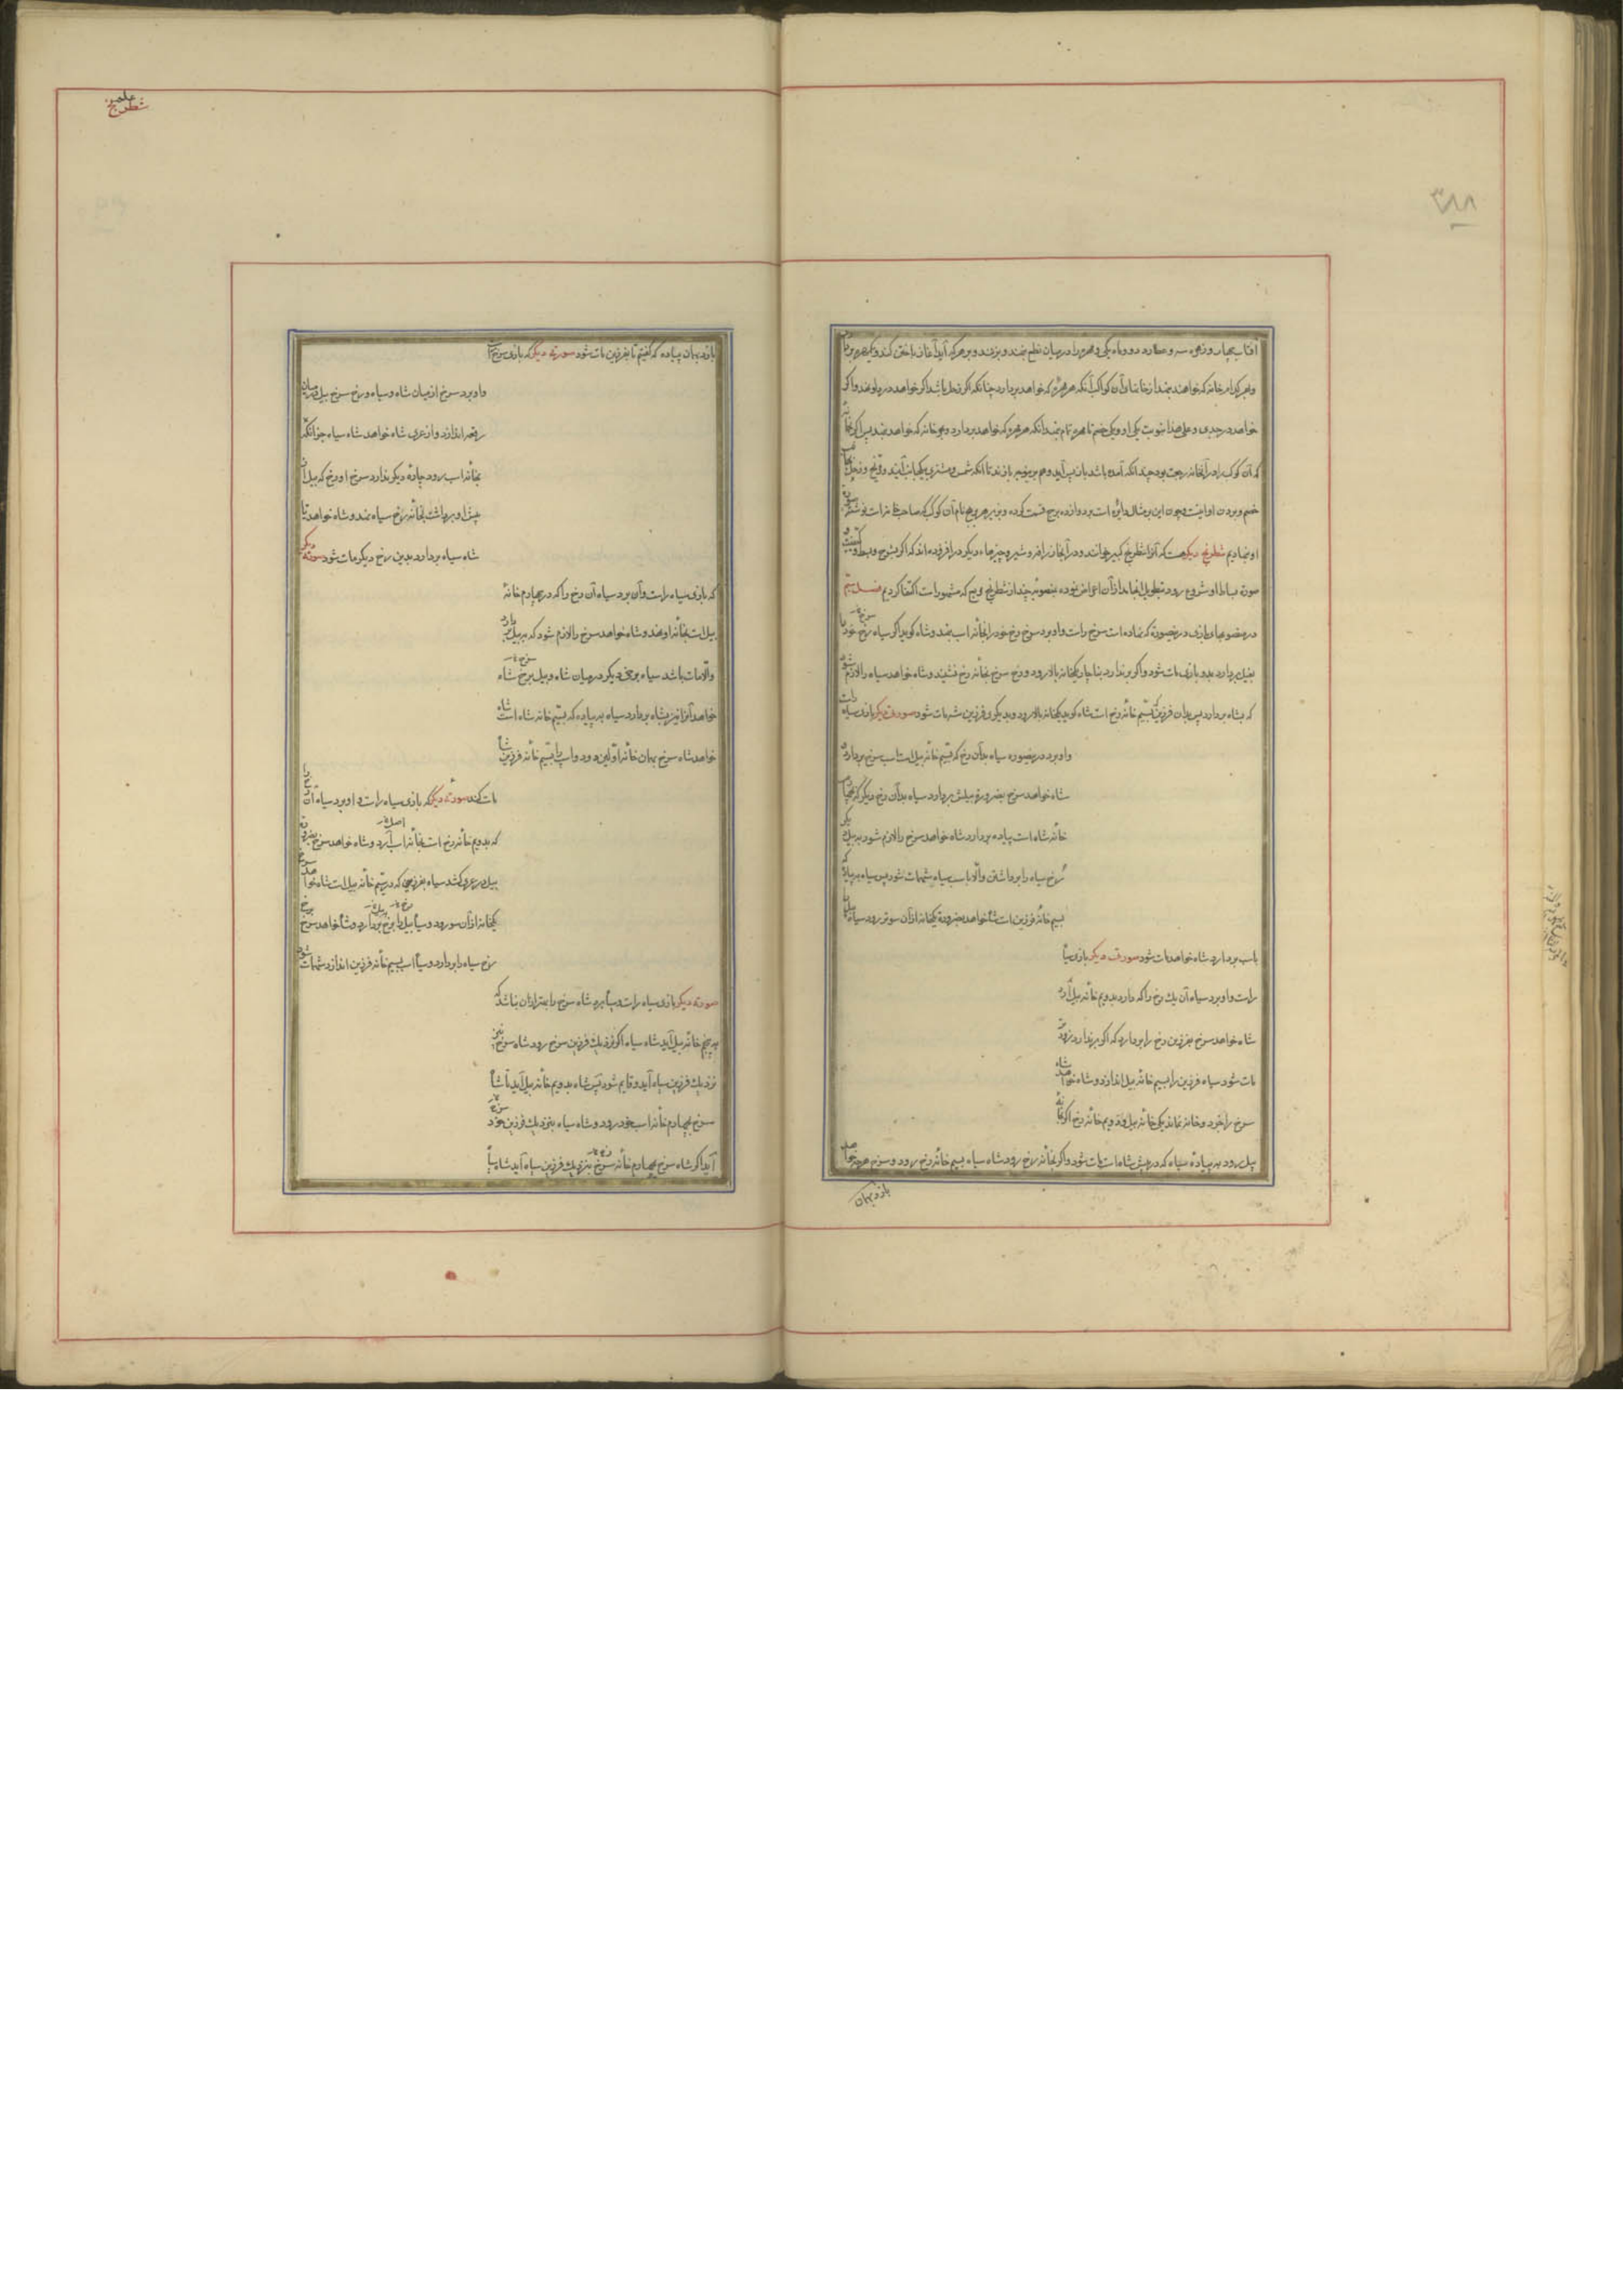 ٣٨٨
آفتاب بچهار و زهره سه و عطارد دو و ماه یکی و مهره را در میان نطع نهند و بزنند و بر هرکه آید آغاز باختن کند و یک مهره بردارد
و بهر کدام خانه که خواهند بنهد از خانها و آن کواکب آنکه هر مهره که خواهد بردارد چنانکه اگر زحل باشد اگر خواهد در دلو نهد و اگر
خواهد در جدی و علی هذا بنوبت یکی او و یکی خصم تا مهره تمام بنهند آنکه هر مهره که خواهد بردارد و بهر خانه که خواهد بنهد پس اگر خانه
که آن کوکب را در آنخانه رجعت بود چندانکه آمده باشد باز پس آید و هم برینوجه بازند تا آنکه شمس و مشتری بیکجانب آیند و مریخ و زحل بجانب
خصم و بردن او اینست و چون این بر مثال دایره است بر دوازده برج قسمت کرده و بر هر برج نام آن کوکب که صاحب است نوشته صورت
او ننهادیم شطرنج دیگر هست که آنرا شطرنج کبیر خوانند و در آنجا زرافه و شیر و چیزهاء دیگر در افزوده اند که اگر بشرح و بسط و کیفیت
صورة بساط او شروع رود بتطویل انجامد از آن اعراض نموده بمنصوبه چند از شطرنج که مشهور است اکتفا کردیم فصل سیّم
در منصوبهای بازی درینصورة که نهاده است سرخ راست و او برد سرخ رخ خود را بخانه اسب نهد و شاه گوید اگر سیاه رخ خود را
بفیل بردارد بدو بازی مات شود و اگر برندارد بناچار یکخانه بالا رود و رخ سرخ بخانه رخ نشیند و شاه خواهد سیاه را لازم شود
که بشاه بردارد پس بدان فرزین که بسیّم خانه رخ است شاه گوید یکخانه بالا رود و بدیگر فرزین شهمات شود صورت دیگر بازی سیاه راست
و او برد درینصوره سیاه بدان رخ که بسیّم خانه پیل است اسب سرخ بردارد
شاه خواهد سرخ بضرورة بپیلش بردارد سیاه بدان رخ دیگر که بچهارم
خانه شاه است پیاده بردارد شاه خواهد سرخ را لازم شود به پیل دیگر
رخ سیاه را برداشتن و الّا با اسب سیاه شهمات شود پس سیاه به پیاده که
بسیم خانه فرزین است شاه خواهد بضرورة یکخانه از آن سوتر رود سیاه پیل را
باسب بردارد شاه خواهد مات شود صورت دیگر بازی سیاه
راست و او برد سیاه آن یک رخ را که دارد بدویم خانه پیل آرد
شاه خواهد سرخ بفرزین رخ را بردارد که اگر برندارد زودتر
مات شود سیاه فرزین را بسیم خانه پیل اندازد و شاه خواهد شاه
سرخ را خود دو خانه نماند یکی خانه پیل و دویم خانه رخ اگر بخانه
پیل رود به پیادهٔ سیاه که در پیش شاه است مات شود و اگر بخانه رخ رود شاه سیاه بسیم خانه رخ رود و سرخ هرچه خواهد
بازد بهمان
علم شطرنج
بازد بهمان پیاده که گفتیم تا بفرزین مات شود صورة دیگر که بازی سرخ راست
و او برد سرخ از میان شاه و سیاه و رخ سرخ پیل در میان
رقعه اندازد و از عری شاه خواهد شاه سیاه جز آنکه
بخانه اسب رود چارهٔ دیگر ندارد سرخ او رخ که پیل از
پیش او برداشت بخانه رخ سیاه نهد و شاه خواهد تا
شاه سیاه بردارد بدین رخ دیگر مات شود صورة دیگر
که بازی سیاه راست و آن برد سیاه آن رخ را که در چهارم خانهٔ
پیل است بخانه او نهد و شاه خواهد سرخ را لازم شود که به پیل بردارد
و الّا مات باشد سیاه برخ دیگر در میان شاه و پیل برخ شاه
خواهد آنرا نیز بشاه بردارد سیاه به پیاده که بسیّم خانه شاه است شاه
خواهد شاه سرخ بهمان خانه اوّلین رود و اسب را بسیّم خانه فرزین
مات کند صورة دیگر که بازی سیاه راست و او برد سیاه آن رخ را
که بدویم خانه رخ است بخانه اسب آرد و شاه خواهد سرخ بضرورة
پیل در عری کشد سیاه بفرزینی که در سیّم خانه پیل است شاه خواهد سرخ
یکخانه از آن سو رود و سیاه پیل را برخ بردارد و شاه خواهد سرخ
رخ سیاه را بردارد و سیاه اسب بسیم خانه فرزین اندازد شهمات شود
صورة دیگر بازی سیاه راست و سیاه برد شاه سرخ را بهتر از آن نباشد که
به پنجم خانه پیل آید شاه سیاه اگر نزدیک فرزین سرخ رود شاه سرخ نیز
نزدیک فرزین سیاه آید و قایم شود پس شاه بدویم خانه پیل آید تا شاه
سرخ بچهارم خانه اسب خود رود و شاه سیاه بنزدیک فرزین خود
آید اگر شاه سرخ بچهارم خانه سرخ بنزدیک فرزین سیاه آید شاه سیاه